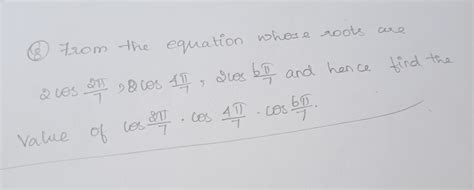 ⑧ From the equation whose roots are
2 cos 2π/7, 2 cos 4π/7, 2 cos 6π/7 and hence find the
Value of cos 2π/7 . cos 4π/7 . cos 6π/7.